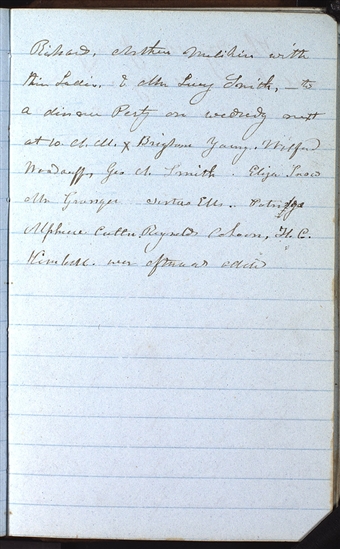 Richard, Arthur Milikin with
their Ladies, & Mrs Lucy Smith, – to
a dinner Party on wednsdy next
at 10. A. M. x Brigham Young. Wilford
Woodruff, Geo A. Smith. Eliza Snow
Mrs Granger sisters Ells. Patridge
Alpheus Cutler, Reynolds Cahoon, H. C.
Kimball. were afterwards added